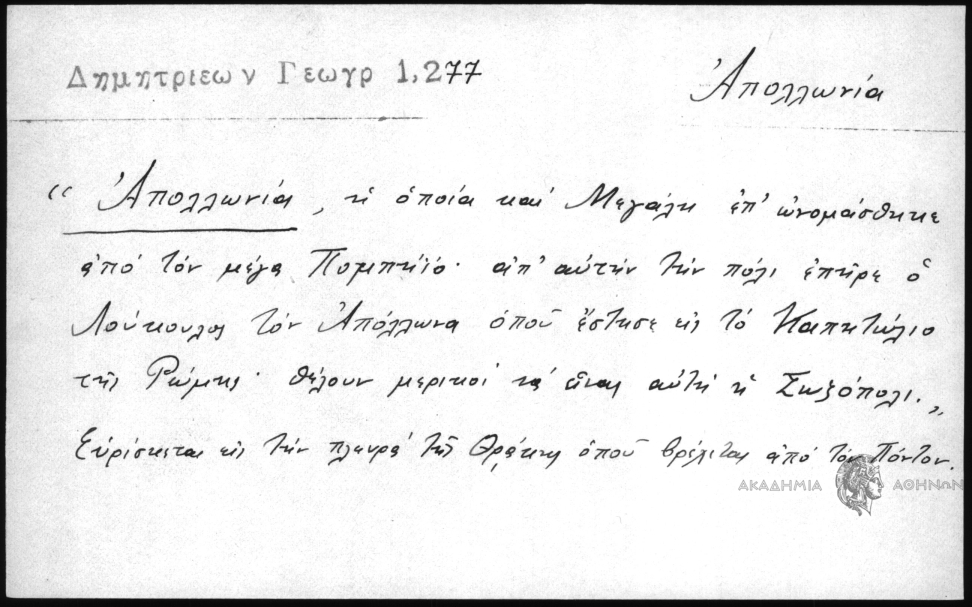 Δημητριεων Γεωγρ 1,277
Ἀπολλωνία
“ Ἀπολλωνία, ἡ ὁποία καί Μεγάλη ἐπ' ὠνομάσθηκε
ἀπό τόν μέγα Πομπήϊο· ἀπ' αὐτήν τήν πόλι ἐπῆρε ὁ
Λούκουλος τόν Ἀπόλλωνα ὁποῦ ἔστησε εἰς τό Καπητώλιο
τῆς Ῥώμης· θέλουν μερικοί νά εἶναι αὐτή ἡ Σωζόπολι. „
Εὑρίσκεται εἰς τήν πλευρά τῆς Θράκης ὁποῦ βρέχεται ἀπό τόν Πόντον.
ΑΚΑΔΗΜΙΑ ΑΘΗΝΩΝ